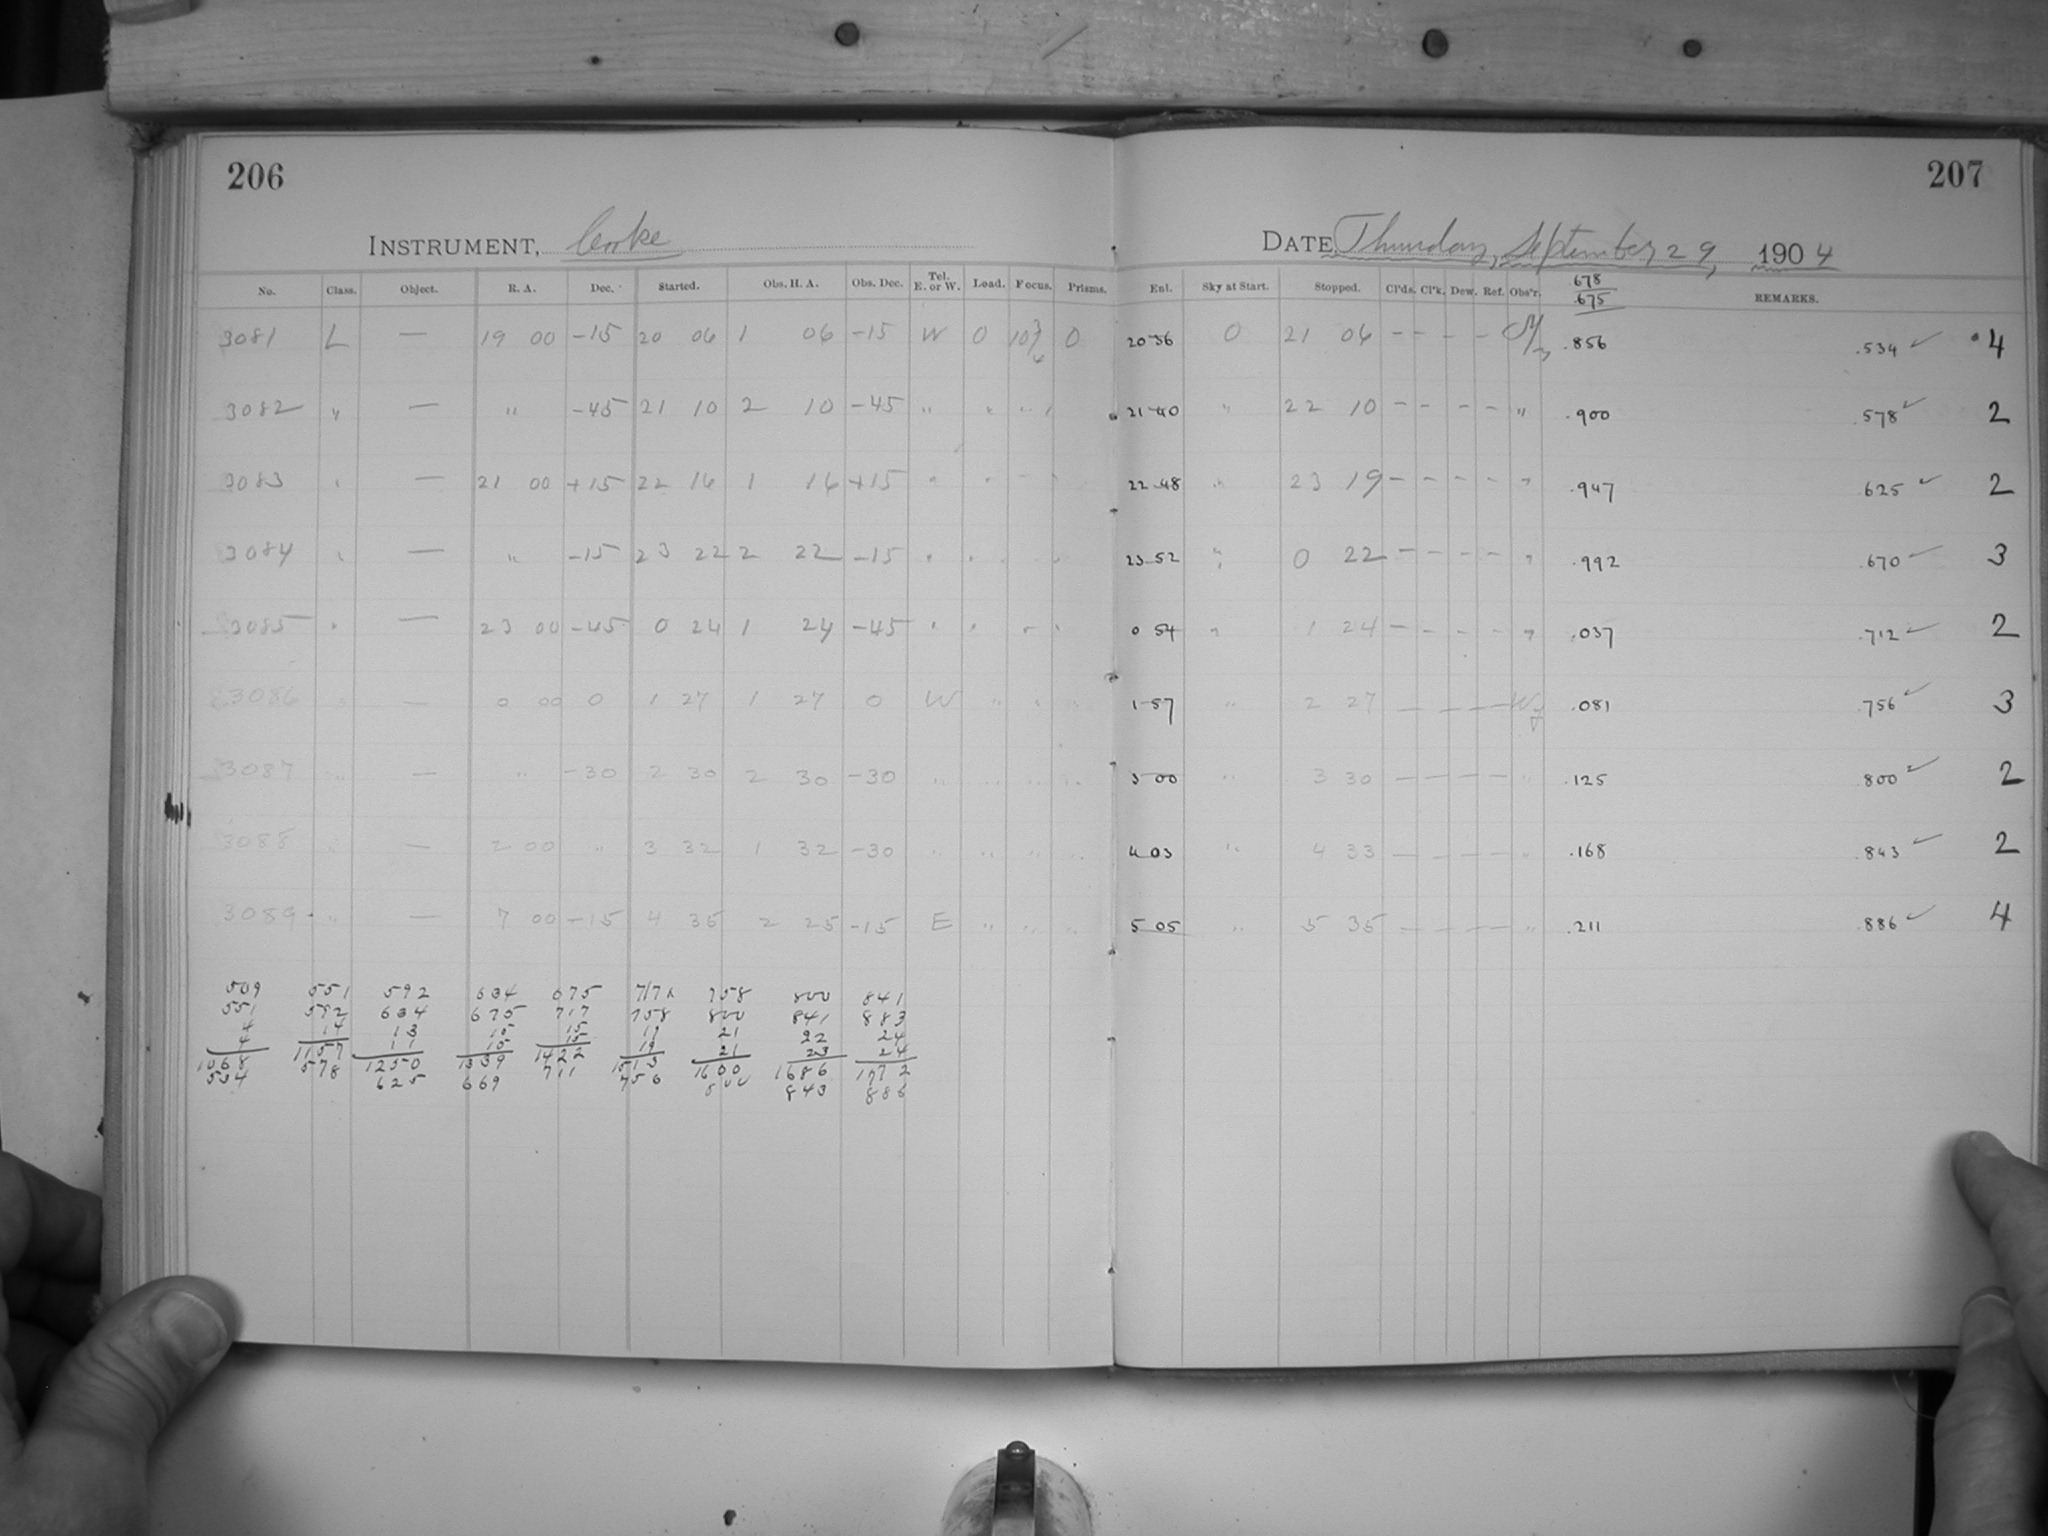 206
207
INSTRUMENT, Cooke
DATE, Thursday, September 29, 1904
No. Class. Object. R. A. Dec. Started. Obs. H. A. Obs. Dec. Tel. E. or W. Load. Focus. Prisms. Enl. Sky at Start. Stopped. Cl'ds. Cl'k. Dew. Ref. Obs'r. 678 .675 REMARKS.
3081 L — 19 00 -15 20 06 1 06 -15 W 0 0 20 36 0 21 06 - - - - .856 .534 ✓ 4
3082 " — " -45 21 10 2 10 -45 " " " " 21 40 " 22 10 - - - - " .900 .578 ✓ 2
3083 " — 21 00 +15 22 16 1 16 +15 " " " " 22 48 " 23 19 - - - - " .947 .625 ✓ 2
3084 " — " -15 23 22 2 22 -15 " " " " 23 52 " 0 22 - - - - " .992 .670 ✓ 3
3085 " — 23 00 -45 0 24 1 24 -45 " " " " 0 54 " 1 24 - - - - " .037 .712 ✓ 2
3086 " — 0 00 0 1 27 1 27 0 W " " " 1 57 " 2 27 - - - - .081 .756 ✓ 3
3087 " — " -30 2 30 2 30 -30 " " " " 3 00 " 3 30 - - - - " .125 .800 ✓ 2
3088 " — 2 00 " 3 32 1 32 -30 " " " " 4 03 " 4 33 - - - - " .168 .843 ✓ 2
3089 " — 7 00 -15 4 35 2 25 -15 E " " " 5 05 " 5 35 - - - - " .211 .886 ✓ 4
509 551 592 634 675 717 758 800 841
551 592 634 675 717 758 800 841 883
4 14 13 15 15 19 21 22 24
4 11 15 15 19 21 23 24
1068 1157 1250 1339 1422 1513 1600 1686 1772
534 578 625 669 711 756 800 843 886